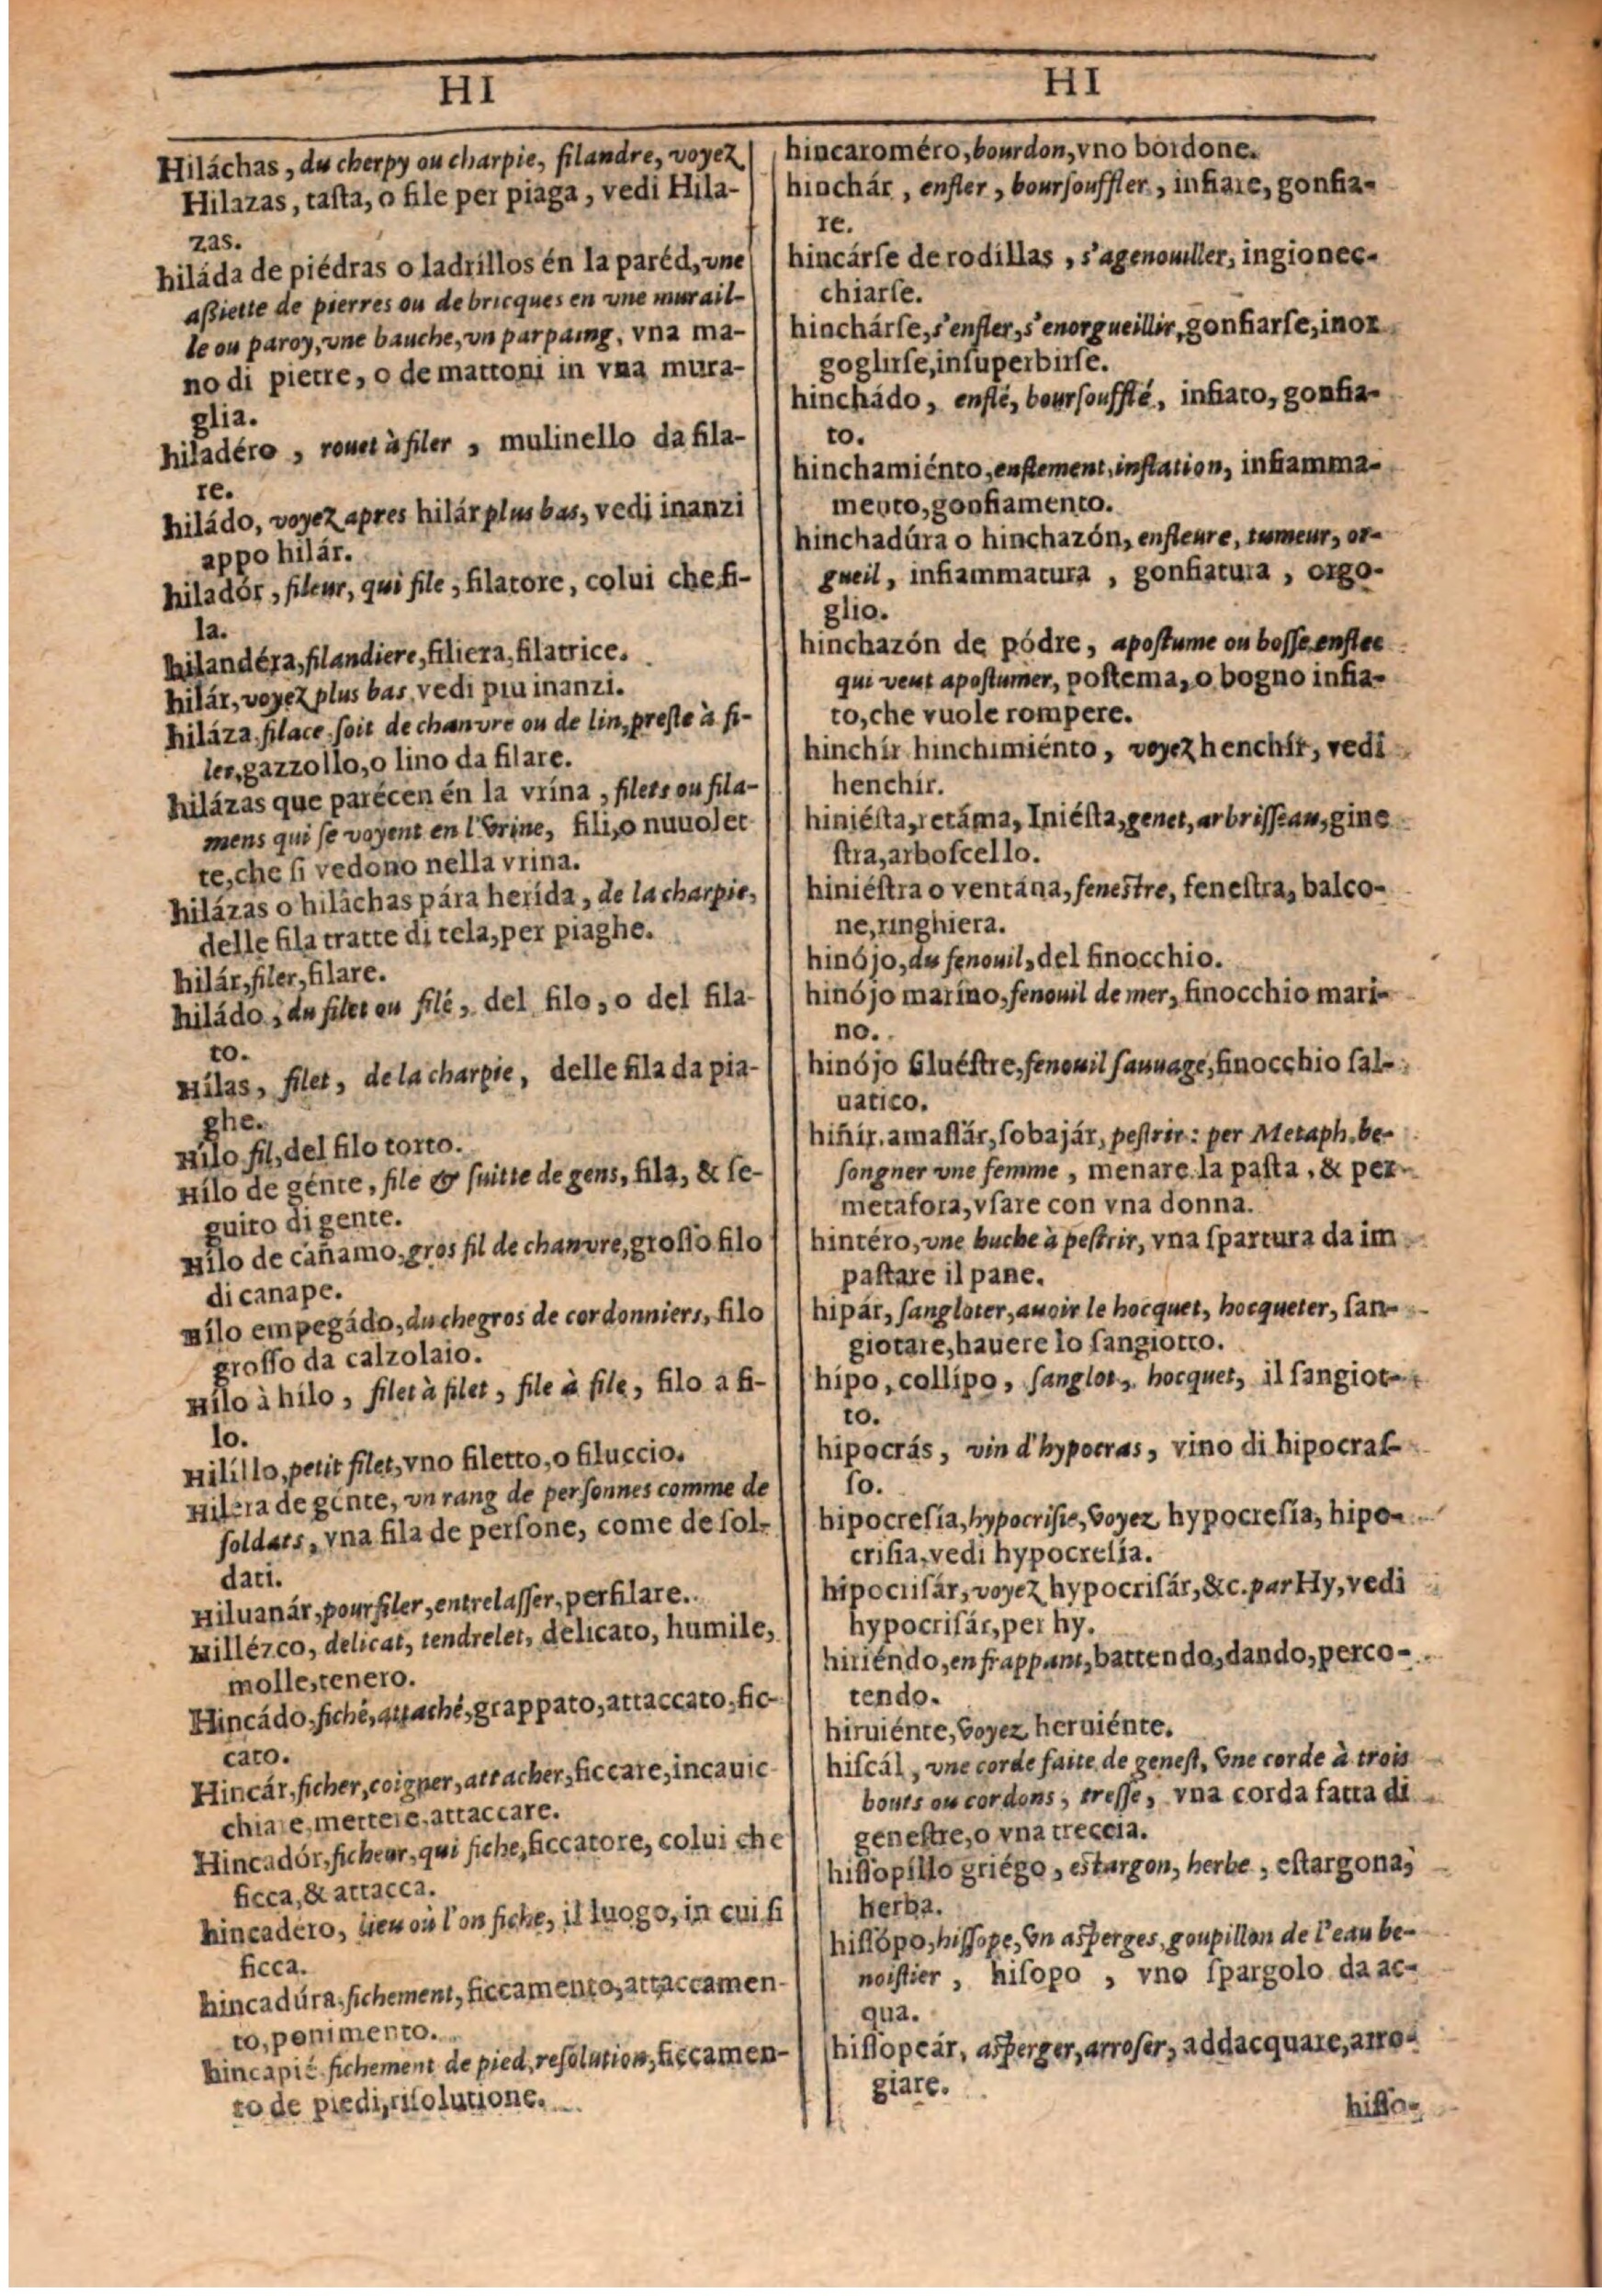 HI
Hiláchas, du cherpy ou charpie, filandre, voyez
Hilazas, taſta, o file per piaga, vedi Hila-
zas.
hiláda de piédras o ladríllos én la paréd, vne
aßiette de pierres ou de bricques en vne murail-
le ou paroy, vne bauche, vn parpaing, vna ma-
no di pietre, o de mattoni in vna mura-
glia.
hiladéro, rouet à filer, mulinello da fila-
re.
hiládo, voyez apres hilár plus bas, vedi inanzi
appo hilár.
hiladór, fileur, qui file, filatore, colui che fi-
la.
hilandéra, filandiere, filiera, filatrice.
hilár, voyez plus bas, vedi piu inanzi.
hiláza, filace, ſoit de chanvre ou de lin, preſte à fi-
ler, gazzollo, o lino da filare.
hilázas que parécen én la vrína, filets ou fila-
mens qui ſe voyent en l'vrine, fili, o nuuolet
te, che ſi vedono nella vrina.
hilázas o hiláchas pára herída, de la charpie,
delle fila tratte di tela, per piaghe.
hilár, filer, filare.
hiládo, du filet ou filé, del filo, o del fila-
to.
Hílas, filet, de la charpie, delle fila da pia-
ghe.
Hílo fil, del filo torto.
Hílo de génte, file & ſuitte de gens, fila, & ſe-
guito di gente.
Hílo de cáñamo, gros fil de chanvre, groſſo filo
di canape.
Hílo empegádo, du chegros de cordonniers, filo
groſſo da calzolaio.
Hílo à hilo, filet à filet, file à file, filo a fi-
lo.
Hilíllo, petit filet, vno filetto, o filuccio.
Hiléra de génte, vn rang de perſonnes comme de
ſoldats, vna fila de perſone, come de ſol-
dati.
Hiluanár, pourfiler, entrelaſſer, perfilare.
Hillézco, delicat, tendrelet, delicato, humile,
molle, tenero.
Hincádo, fiché, attaché, grappato, attaccato, fic-
cato.
Hincár, ficher, coigner, attacher, ficcare, incauic
chiare, mettere, attaccare.
Hincadór, ficheur, qui fiche, ficcatore, colui che
ficca, & attacca.
hincadero, lieu où l'on fiche, il luogo, in cui ſi
ficca.
hincadúra, fichement, ficcamento, attaccamen-
to, ponimento.
hincapié fichement de pied, reſolution, ficcamen-
to de piedi, riſolutione.
HI
hincaroméro, bourdon, vno bordone.
hinchár, enfler, bourſouffler, infiare, gonfia-
re.
hincárſe de rodíllas, s'agenouiller, ingionec-
chiarſe.
hinchárſe, s'enfler, s'enorgueillir, gonfiarſe, inor
goglirſe, inſuperbirſe.
hinchádo, enflé, bourſoufflé, infiato, gonfia-
to.
hinchamiénto, enflement, inflation, infiamma-
mento, gonfiamento.
hinchadúra o hinchazón, enfleure, tumeur, or-
gueil, infiammatura, gonfiatura, orgo-
glio.
hinchazón de pódre, apoſtume ou boſſe enflee
qui veut apoſtumer, poſtema, o bogno infia-
to, che vuole rompere.
hinchír hinchimiénto, voyez henchír, vedi
henchir.
hiniéſta, retáma, Iniéſta, genet, arbriſſeau, gine
ſtra, arboſcello.
hiniéſtra o ventána, feneſtre, feneſtra, balco-
ne, ringhiera.
hinójo, du fenouil, del finocchio.
hinójo maríno, fenouil de mer, finocchio mari-
no.
hinójo ſiluéſtre, fenouil ſauuage, finocchio ſal-
uatico.
hiñír, amaſſár, ſobajár, peſtrir: per Metaph. be-
ſongner vne femme, menare la paſta, & per
metafora, vſare con vna donna.
hintéro, vne huche à peſtrir, vna ſpartura da im
paſtare il pane.
hipár, ſangloter, auoir le hocquet, hocqueter, ſan-
giotare, hauere lo ſangiotto.
hípo, collípo, ſanglot, hocquet, il ſangiot-
to.
hipocrás, vin d'hypocras, vino di hipocraſ-
ſo.
hipocreſía, hypocriſie, voyez hypocreſía, hipo-
criſia, vedi hypocreſía.
hipocriſár, voyez hypocriſár, &c. par Hy, vedi
hypocriſár, per hy.
hiriéndo, en frappant, battendo, dando, perco-
tendo.
hiruiénte, voyez heruiénte.
hiſcál, vne corde faite de geneſt, vne corde à trois
bouts ou cordons, treſſe, vna corda fatta di
geneſtre, o vna treccia.
hiſſopíllo griégo, eſtargon, herbe, eſtargona,
herba.
hiſſópo, hiſſope, vn aſperges, goupillon de l'eau be-
noiſtier, hiſopo, vno ſpargolo da ac-
qua.
hiſſopeár, aſperger, arroſer, addacquare, arro-
giare.
hiſſo-